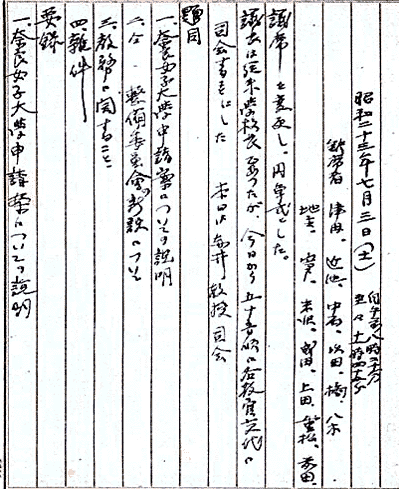 昭和二十三年七月三日(土) 自午前八時三十分
至々十一時四十五分
欠席者 津田、近池、中、以田、橋、八木
地主、宍戸、末次、成田、上田、重松、前田、
議席を変更し、円卓式とした。
議長は従来学校長であったが、今日から五十音順に各教官交代に
司会することにした 本日は 井教授司会
題目
一、奈良女子大学申請案についての説明
二、仝 整備委員会新設について
三、教務に関すること
四、雑件
要録
一、奈良女子大学申請案についての説明